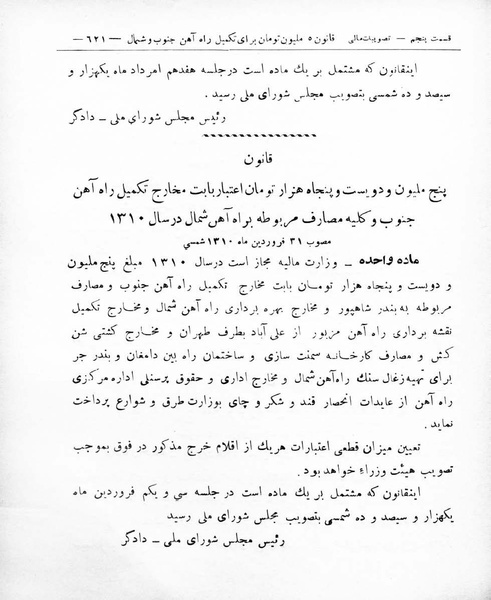 قسمت پنجم — تصویبات مالی قانون ۵ ملیون تومان برای تکمیل راه آهن جنوب و شمال — ۶۲۱ —
اینقانون که مشتمل بر یك ماده است درجلسه هفدهم امرداد ماه یکهزار و
سیصد و ده شمسی بتصویب مجلس شورای ملی رسید .
رئیس مجلس شورای ملی ـ دادگر
قانون
پنج ملیون و دویست و پنجاه هزار تومان اعتبار بابت مخارج تکمیل راه آهن
جنوب و کلیه مصارف مربوطه براه آهن شمال در سال ۱۳۱۰
مصوب ۳۱ فروردین ماه ۱۳۱۰ شمسی
ماده واحده ـ وزارت مالیه مجاز است درسال ۱۳۱۰ مبلغ پنج ملیون
و دویست و پنجاه هزار تومان بابت مخارج تکمیل راه آهن جنوب و مصارف
مربوطه به بندر شاهپور و مخارج بهره برداری راه آهن شمال و مخارج تکمیل
نقشه برداری راه آهن مزبور از علی آباد بطرف طهران و مخارج کشتی شن
کش و مصارف کارخانه سمنت سازی و ساختمان راه بین دامغان و بندر جز
برای تهیه زغال سنك راه آهن شمال و مخارج اداری و حقوق پرسنلی اداره مرکزی
راه آهن از عایدات انحصار قند و شکر و چای بوزارت طرق و شوارع پرداخت
نماید .
تعیین میزان قطعی اعتبارات هریك از اقلام خرج مذکور در فوق بموجب
تصویب هیئت وزراء خواهد بود .
اینقانون که مشتمل بر یك ماده است در جلسه سی و یکم فروردین ماه
یکهزار و سیصد و ده شمسی بتصویب مجلس شورای ملی رسید
رئیس مجلس شورای ملی ـ دادگر